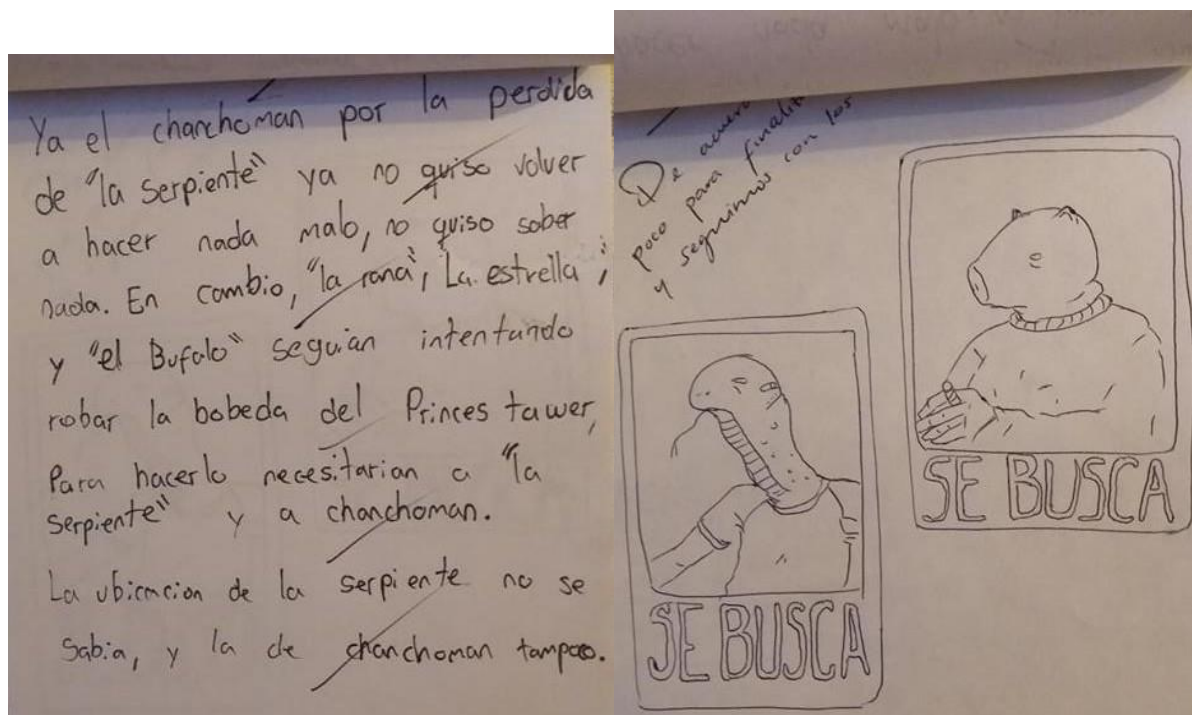 Ya el chanchoman por la perdida
de "la serpiente" ya no quiso volver
a hacer nada malo, no quiso saber
nada. En cambio, "la rana", La estrella,
y "el Bufalo" seguian intentando
robar la bobeda del Princes tawer,
Para hacerlo necesitarian a "la
serpiente" y a chanchoman.
La ubicacion de la serpiente no se
sabia, y la de chanchoman tampoco.
De
poco para
y seguimos con los
SE BUSCA
SE BUSCA